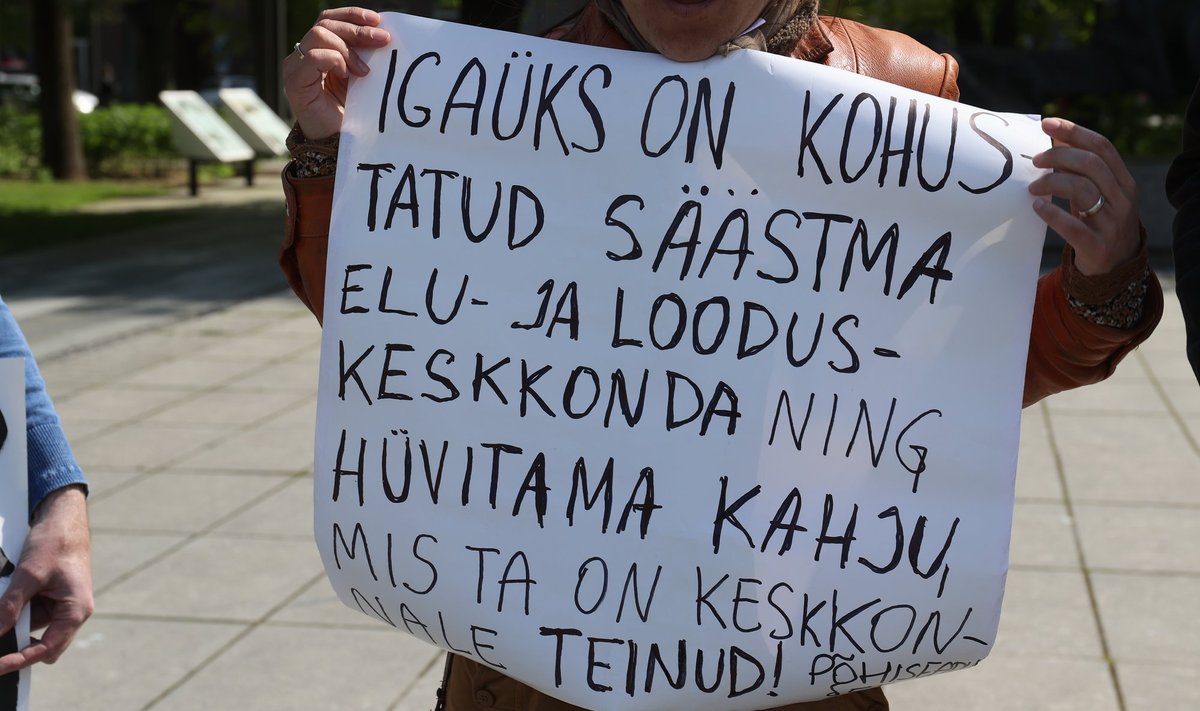 IGAÜKS ON KOHUS-
TATUD SÄÄSTMA
ELU- JA LOODUS-
KESKKONDA NING
HÜVITAMA KAHJU,
MIS TA ON KESKKON-
NALE TEINUD!